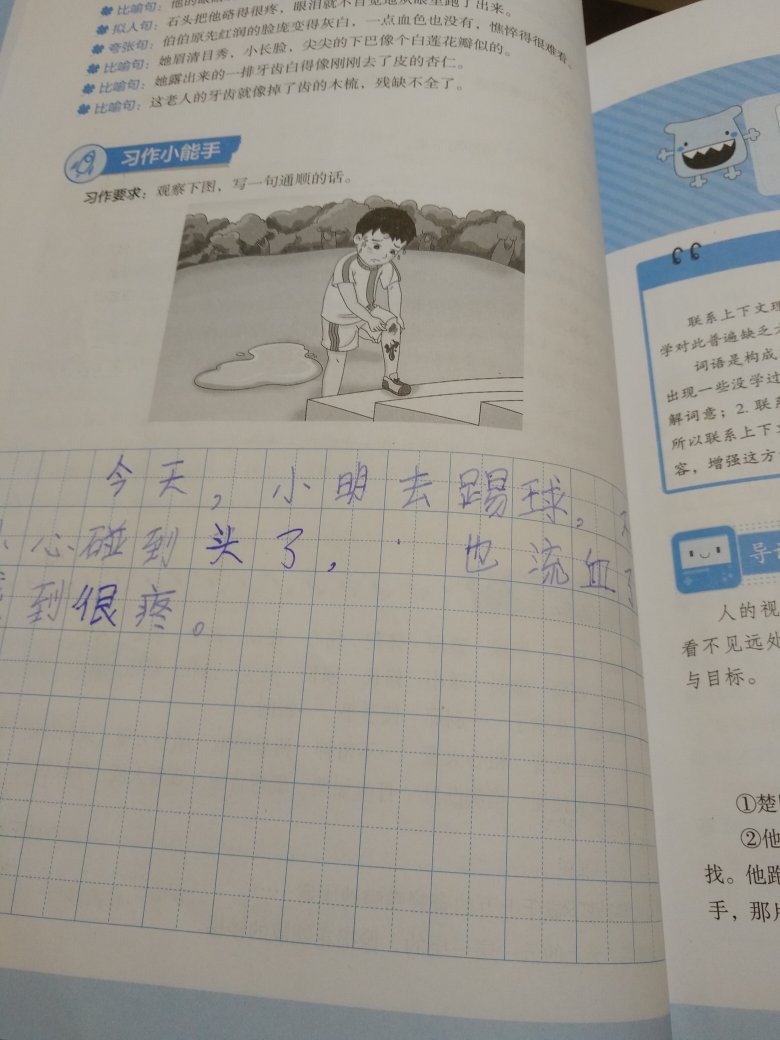 比喻句：他的眼
眼泪就不自觉地从眼里跑了出来。
拟人句：石头把他硌得很疼，
夸张句：伯伯原先红润的脸庞变得灰白，一点血色也没有，憔悴得很难看。
比喻句：她眉清目秀，小长脸，尖尖的下巴像个白莲花瓣似的。
比喻句：她露出来的一排牙齿白得像刚刚去了皮的杏仁。
比喻句：这老人的牙齿就像掉了齿的木梳，残缺不全了。
习作小能手
习作要求：观察下图，写一句通顺的话。
今天，小明去踢球，
心碰到头了，也流血了
到很疼。
联系上下文理
学对此普遍缺乏
词语是构成
出现一些没学过
解词意；2. 联
所以联系上下文
容，增强这方
导
人的视
看不见远处
与目标。
①楚
②他
找。他跑
手，那片